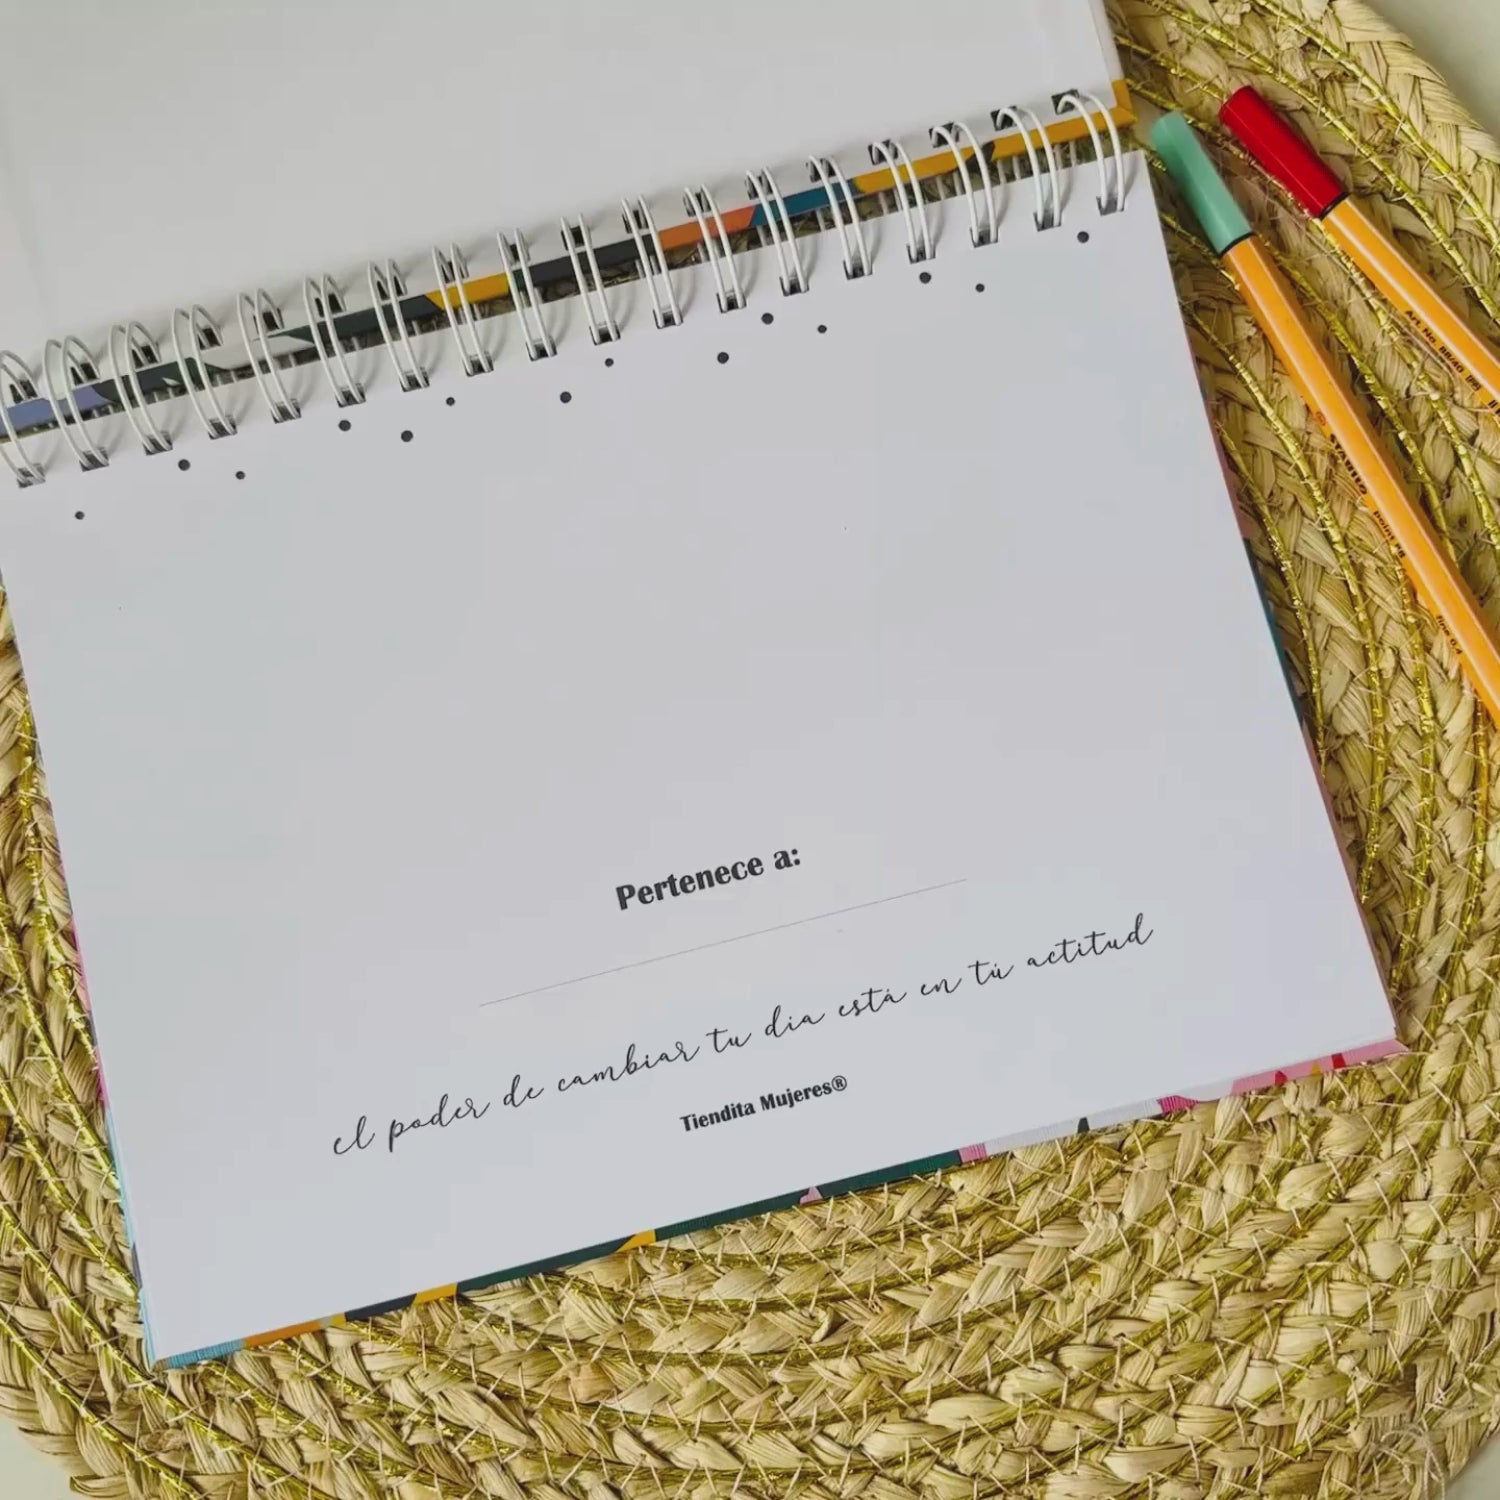 Pertenece a:
el poder de cambiar tu dia está en tú actitud
Tiendita Mujeres®
STABILO point 88 fine 0,4
Art. No. 88/40